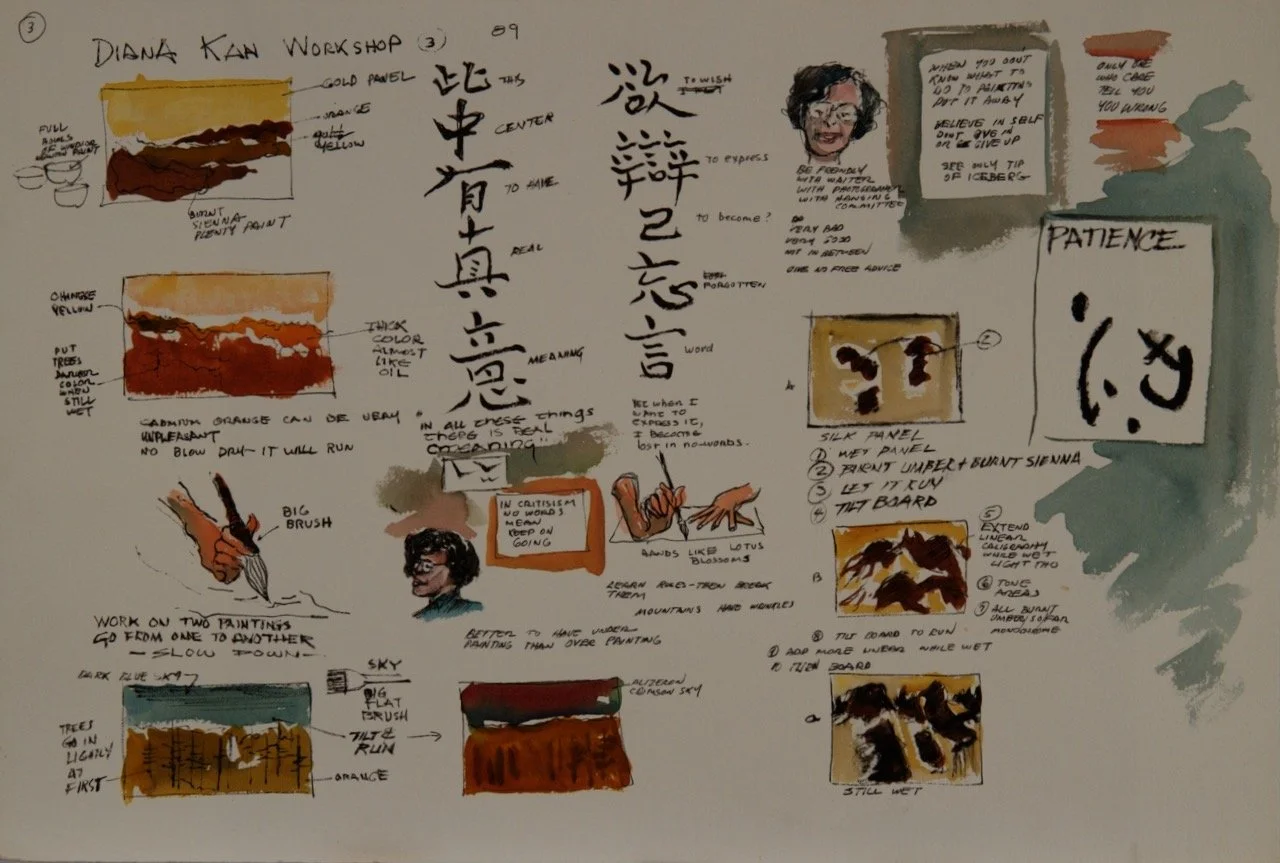 3
DIANA KAN WORKSHOP 3 89
GOLD PANEL
ORANGE
YELLOW
FULL
OF WINDSOR
PAINT
BURNT
SIENNA
PLENTY PAINT
CHINESE
YELLOW
THICK
COLOR
ALMOST
LIKE
OIL
PUT
TREES
DARKER
COLOR
WHEN
STILL
WET
CADMIUM ORANGE CAN BE VERY
UNPLEASANT
NO BLOW DRY - IT WILL RUN
BIG
BRUSH
WORK ON TWO PAINTINGS
GO FROM ONE TO ANOTHER
- SLOW DOWN -
DARK BLUE SKY
SKY
BIG
FLAT
BRUSH
TREES
GO IN
LIGHTLY
AT
FIRST
TILT &
RUN
ORANGE
此 THIS
中 CENTER
有 TO HAVE
真 REAL
意 MEANING
"IN ALL THESE THINGS
THERE IS REAL
MEANING"
欲 TO WISH
辯 TO EXPRESS
己 TO BECOME?
忘 FORGOTTEN
言 WORD
YET WHEN I
WANT TO
EXPRESS IT,
I BECOME
LOST IN NO-WORDS.
IN CRITISISM
NO WORDS
MEAN
KEEP ON
GOING
HANDS LIKE LOTUS
BLOSSOMS
LEARN RULES - THEN BREAK
THEM
MOUNTAINS HAVE WRINKLES
BETTER TO HAVE UNDER
PAINTING THAN OVER PAINTING
ALIZERON
CRIMSON SKY
BE FRIENDLY
WITH WAITER
WITH PHOTOGRAPHER
WITH HANGING
COMMITTEE
VERY BAD
VERY GOOD
NOT IN BETWEEN
GIVE NO FREE ADVICE
WHEN YOU DON'T
KNOW WHAT TO
DO TO PAINTING
PUT IT AWAY
BELIEVE IN SELF
DONT GIVE IN
OR GIVE UP
SEE ONLY TIP
OF ICEBERG
ONLY ONE
WHO CARE
TELL YOU
YOU WRONG
PATIENCE
2
A
SILK PANEL
1 WET PANEL
2 BURNT UMBER + BURNT SIENNA
3 LET IT RUN
4 TILT BOARD
B
5
EXTEND
LINEAR
CALIGRAPHY
WHILE WET
LIGHT THO
6 TONE
AREAS
7 ALL BURNT
UMBER SO FAR
MONOCHROME
8 TILT BOARD TO RUN
9 ADD MORE LINEAR WHILE WET
10 TURN BOARD
C
STILL WET